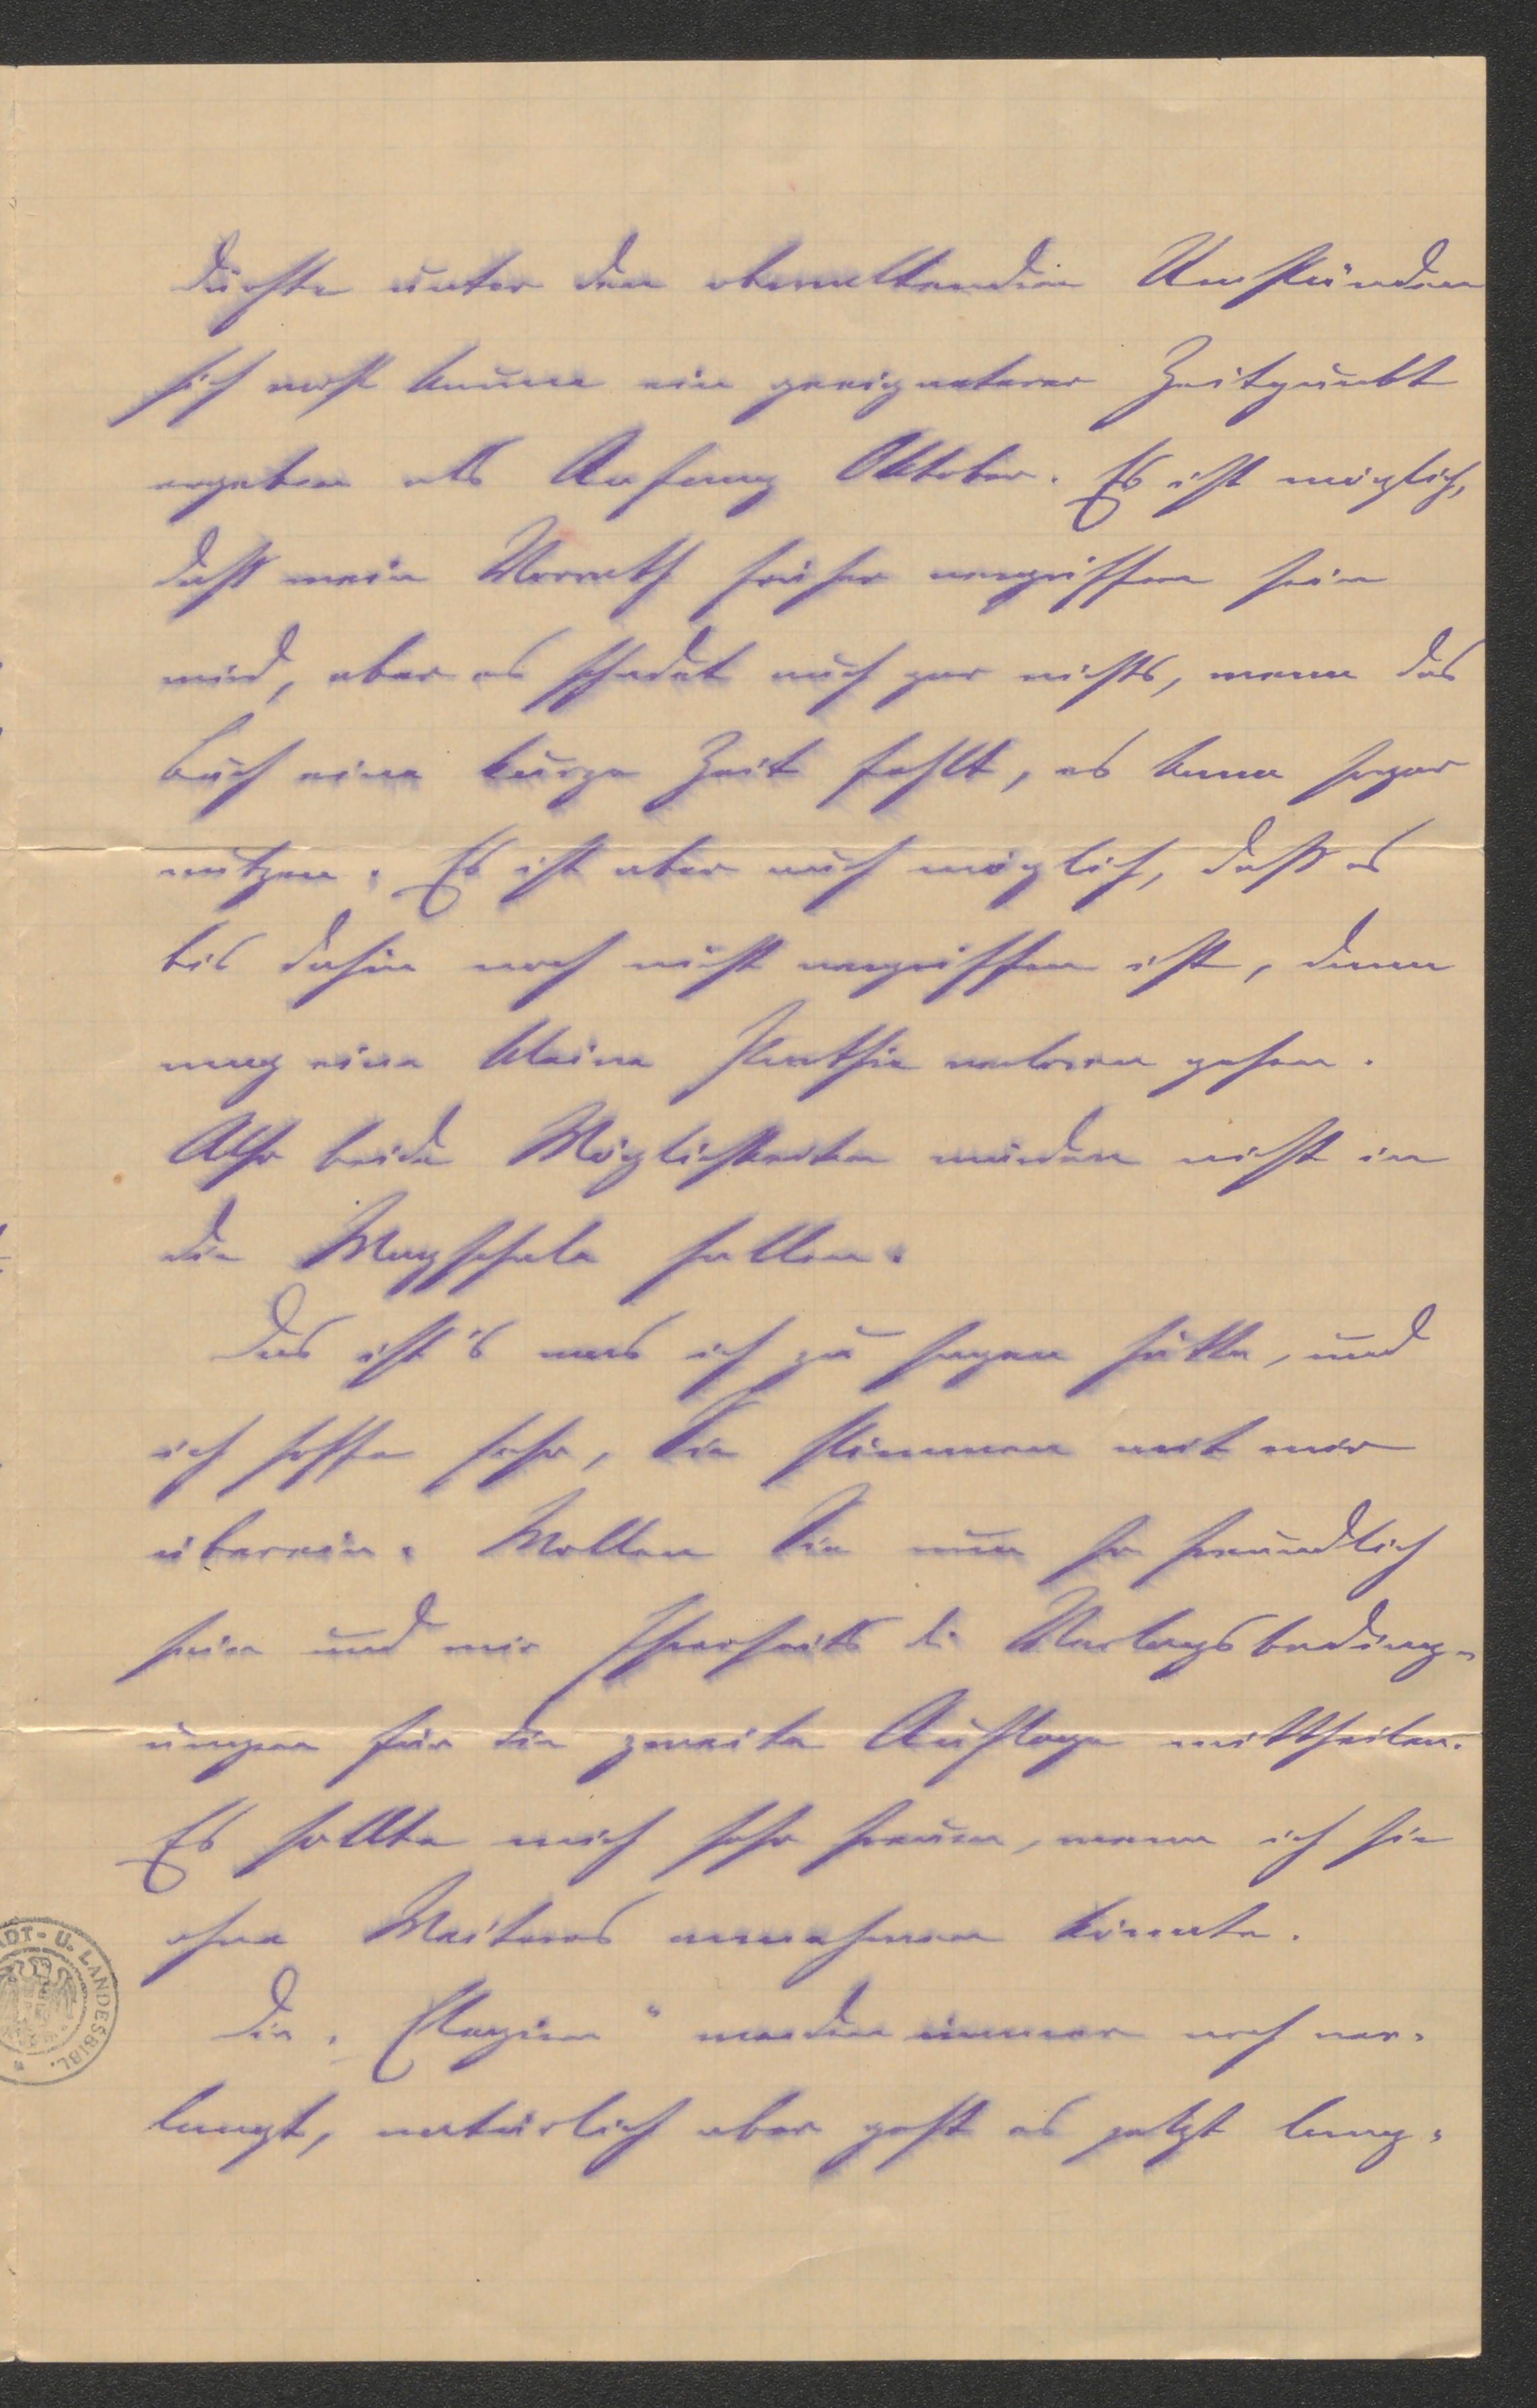 dürfte unter den obwaltenden Umständen
sich wohl kaum ein geeigneterer Zeitpunkt
ergeben als Anfang Oktober. Es ist möglich,
daß mein Vorrath früher vergriffen sein
wird, aber es schadet auch gar nichts, wenn das
Buch eine kurze Zeit fehlt, es kann sogar
nutzen. Es ist aber auch möglich, daß es
bis dahin noch nicht vergriffen ist, dann
mag eine kleine Parthie verloren gehen.
Also beide Möglichkeiten würden nicht in
die Wagschale fallen.
Das ist's was ich zu sagen hätte, und
ich hoffe sehr, Sie stimmen mit mir
überein. Wollen Sie nun so freundlich
sein und mir Ihrerseits die Verlagsbeding-
ungen für die zweite Auflage mittheilen.
Es sollte mich sehr freuen, wenn ich sie
ohne Weiteres annehmen könnte.
Die „Elegien“ werden immer noch ver-
langt, natürlich aber geht es jetzt lang-
DT- U. LANDESBIBL.